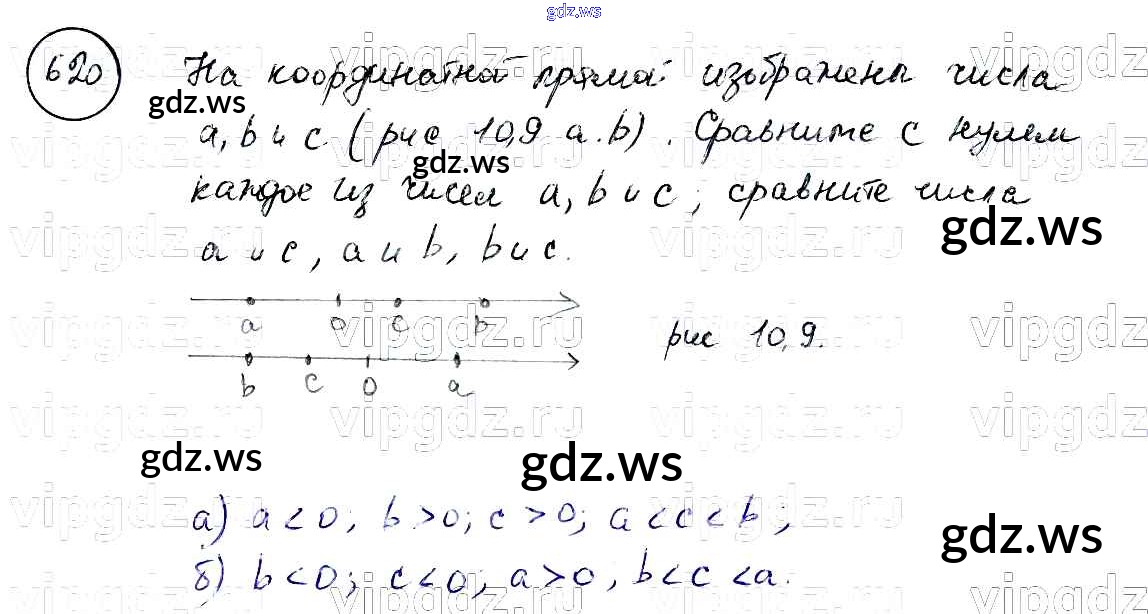 gdz.ws
620 На координатной прямой изображены числа
gdz.ws
a, b и c. (рис 10,9 а.b). Сравните с нулем
gdz.ws
каждое из чисел a, b и c; сравните числа
gdz.ws
a и c, a и b, b и c.
a 0 c b
рис 10,9.
b c 0 a
gdz.ws
gdz.ws
а) a < 0, b > 0; c > 0; a < c < b;
gdz.ws
б) b < 0; c < 0; a > 0, b < c < a.
vipgdz.ru